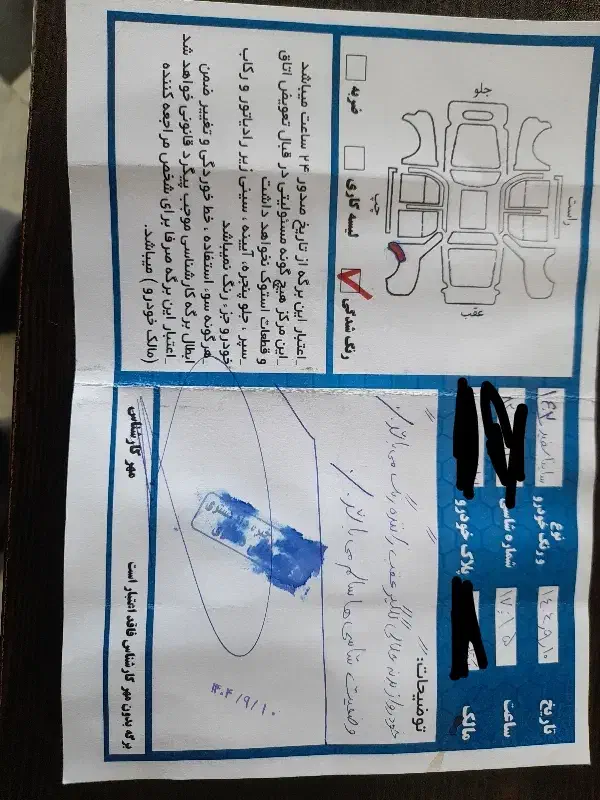 نوع و رنگ خودرو
سایپا سفید
شماره شاسی
پلاک خودرو
تاریخ
ساعت
۱۷:۱۵
مالک
جلو
راست
چپ
عقب
رنگ شدگی
لیسه کاری
ضربه
_اعتبار این برگه از تاریخ صدور ۲۴ ساعت میباشد
_این مرکز هیچ گونه مسئولیتی در قبال تعویض اتاق
و قطعات استوک نخواهد داشت
_سپر ، جلو پنجره، آیینه ، سینی زیر رادیاتور و رکاب
خودرو جزء رنگ نمیباشد
_هرگونه سوء استفاده ، خط خوردگی و تغییر ضمن
ابطال برگه کارشناسی موجب پیگرد قانونی خواهد شد
_اعتبار این برگه صرفا برای شخص مراجعه کننده
(مالک خودرو ) میباشد.
توضیحات:
خودرو از بدنه گلگیر عقب راننده رنگ می باشد.
وضعیت شاسی ها سالم می باشد.
۱۴۰۴/۹/۱۰
مهر کارشناس
برگه بدون مهر کارشناس فاقد اعتبار است